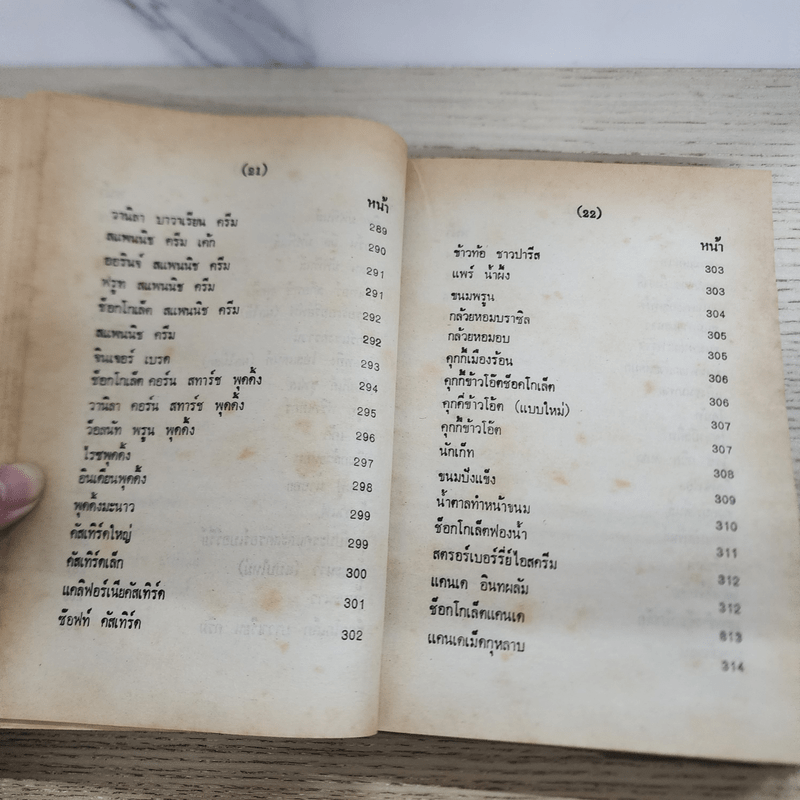 (21)
หน้า
วานิลา บาวาเรียน ครีม 289
สแพนนิช ครีม เค้ก 290
ออรินจ์ สแพนนิช ครีม 291
ฟรูท สแพนนิช ครีม 291
ช็อกโกเล็ต สแพนนิช ครีม 292
สแพนนิช ครีม 292
จินเจอร์ เบรด 293
ช็อกโกเล็ต คอร์น สทาร์ช พุดดิ้ง 294
วานิลา คอร์น สทาร์ช พุดดิ้ง 295
ว็อลนัท พรูน พุดดิ้ง 296
ไรซพุดดิ้ง 297
อินเดียนพุดดิ้ง 298
พุดดิ้งมะนาว 299
คัสเทิร์ดใหญ่ 299
คัสเทิร์ดเล็ก 300
แคลิฟอร์เนียคัสเทิร์ด 301
ซ๊อฟท์ คัสเทิร์ด 302
(22)
หน้า
ข้าวท้อ ชาวปารีส 303
แพร์ น้ำผึ้ง 303
ขนมพรูน 304
กล้วยหอมบราซิล 305
กล้วยหอมอบ 305
คุกกี้เมืองร้อน 306
คุกกี้ข้าวโอ๊ตช็อคโกเล็ต 306
คุกกี้ข้าวโอ๊ต (แบบใหม่) 307
คุกกี้ข้าวโอ๊ต 307
นักเก็ท 308
ขนมปังแข็ง 309
น้ำตาลทำหน้าขนม 310
ช็อกโกเล็ตฟองน้ำ 311
สตรอร์เบอร์รี่ย์ไอสครีม 312
แคนเด อินทผลัม 312
ช็อกโกเล็ตแคนเด 313
แคนเดเม็ดกุหลาบ 314